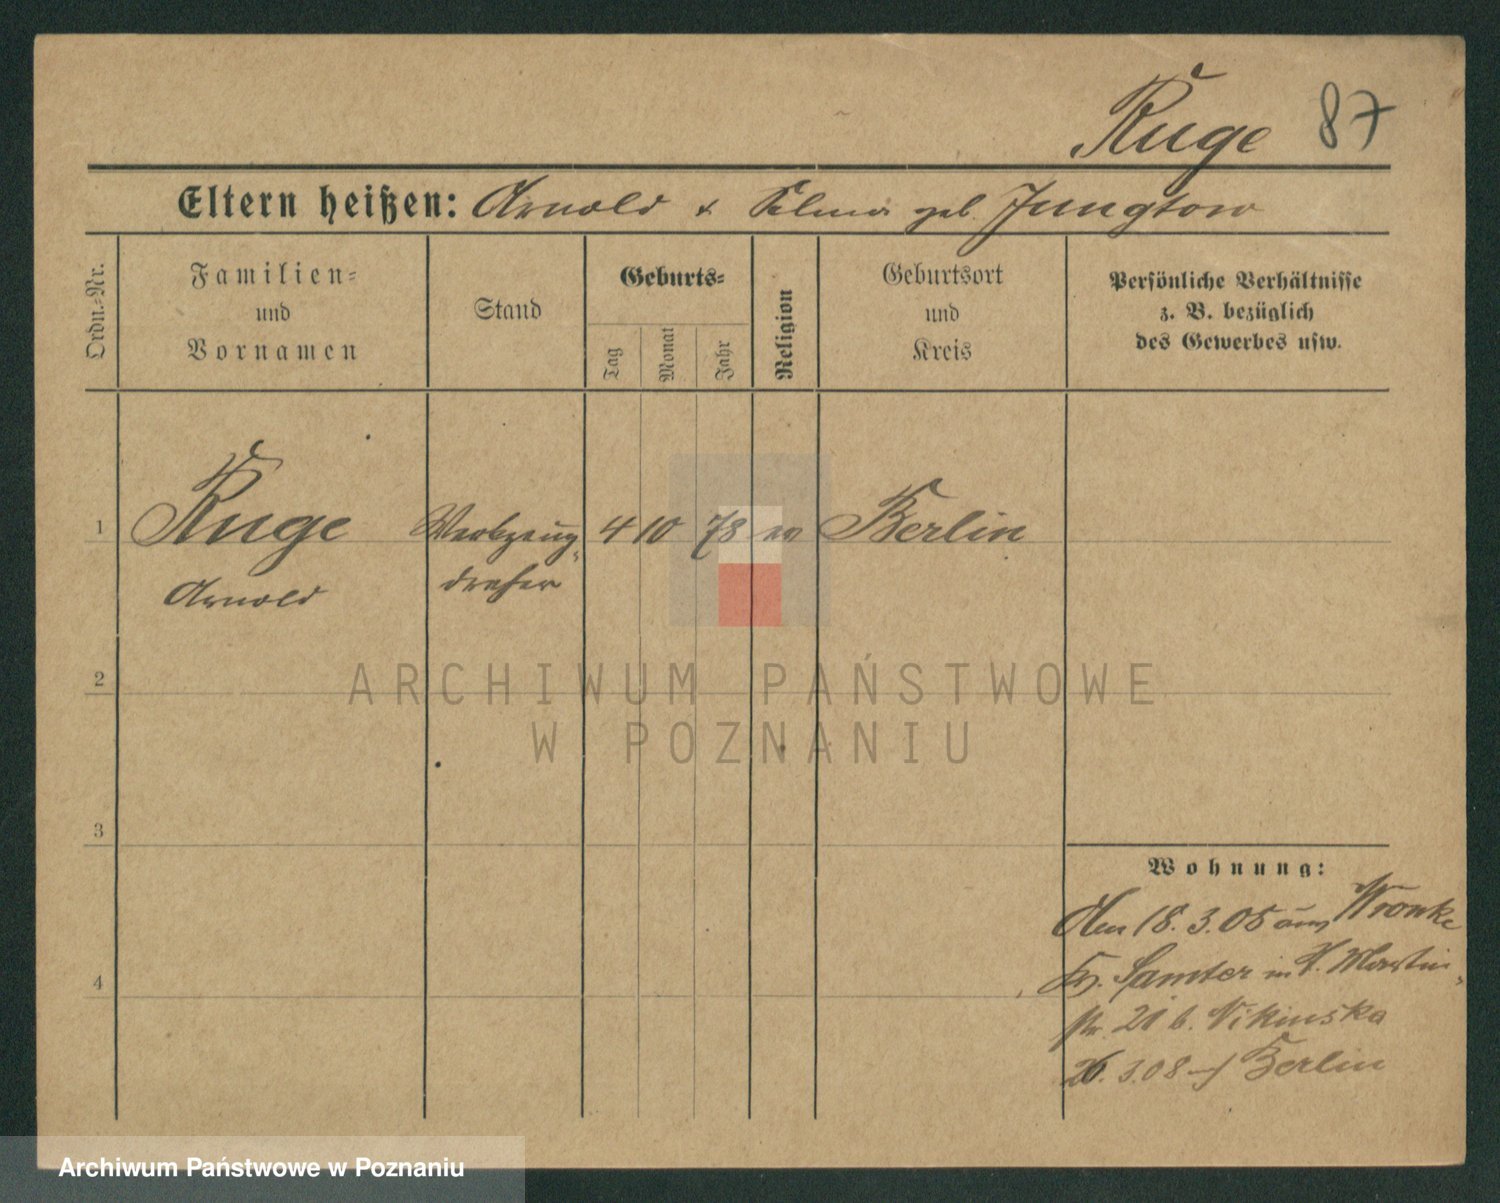 Ruge 87
Eltern heißen: Arnold & Selma geb. Jungtow
Ordn.-Nr.
Familien-
und
Vornamen
Stand
Geburts-
Tag
Monat
Jahr
Religion
Geburtsort
und
Kreis
Persönliche Verhältnisse
z. B. bezüglich
des Gewerbes usw.
1 Ruge Werkzeug- 4 10 78 ev Berlin
Arnold dreher
2
ARCHIWUM PAŃSTWOWE
W POZNANIU
3
Wohnung:
18. 3. 08 aus Wronke
Kr. Samter in St. Martin-
str. 21 b. Nikinska
26. 3. 08 Berlin
4
Archiwum Państwowe w Poznaniu